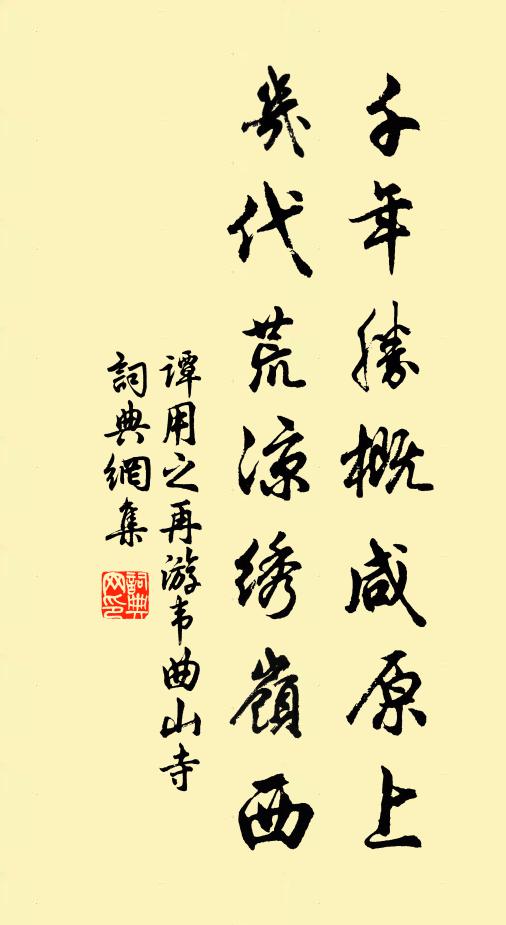 千年勝概咸原上
幾代荒涼绣嶺西
谭用之再游韦曲山寺
詞典網集
詞典網印